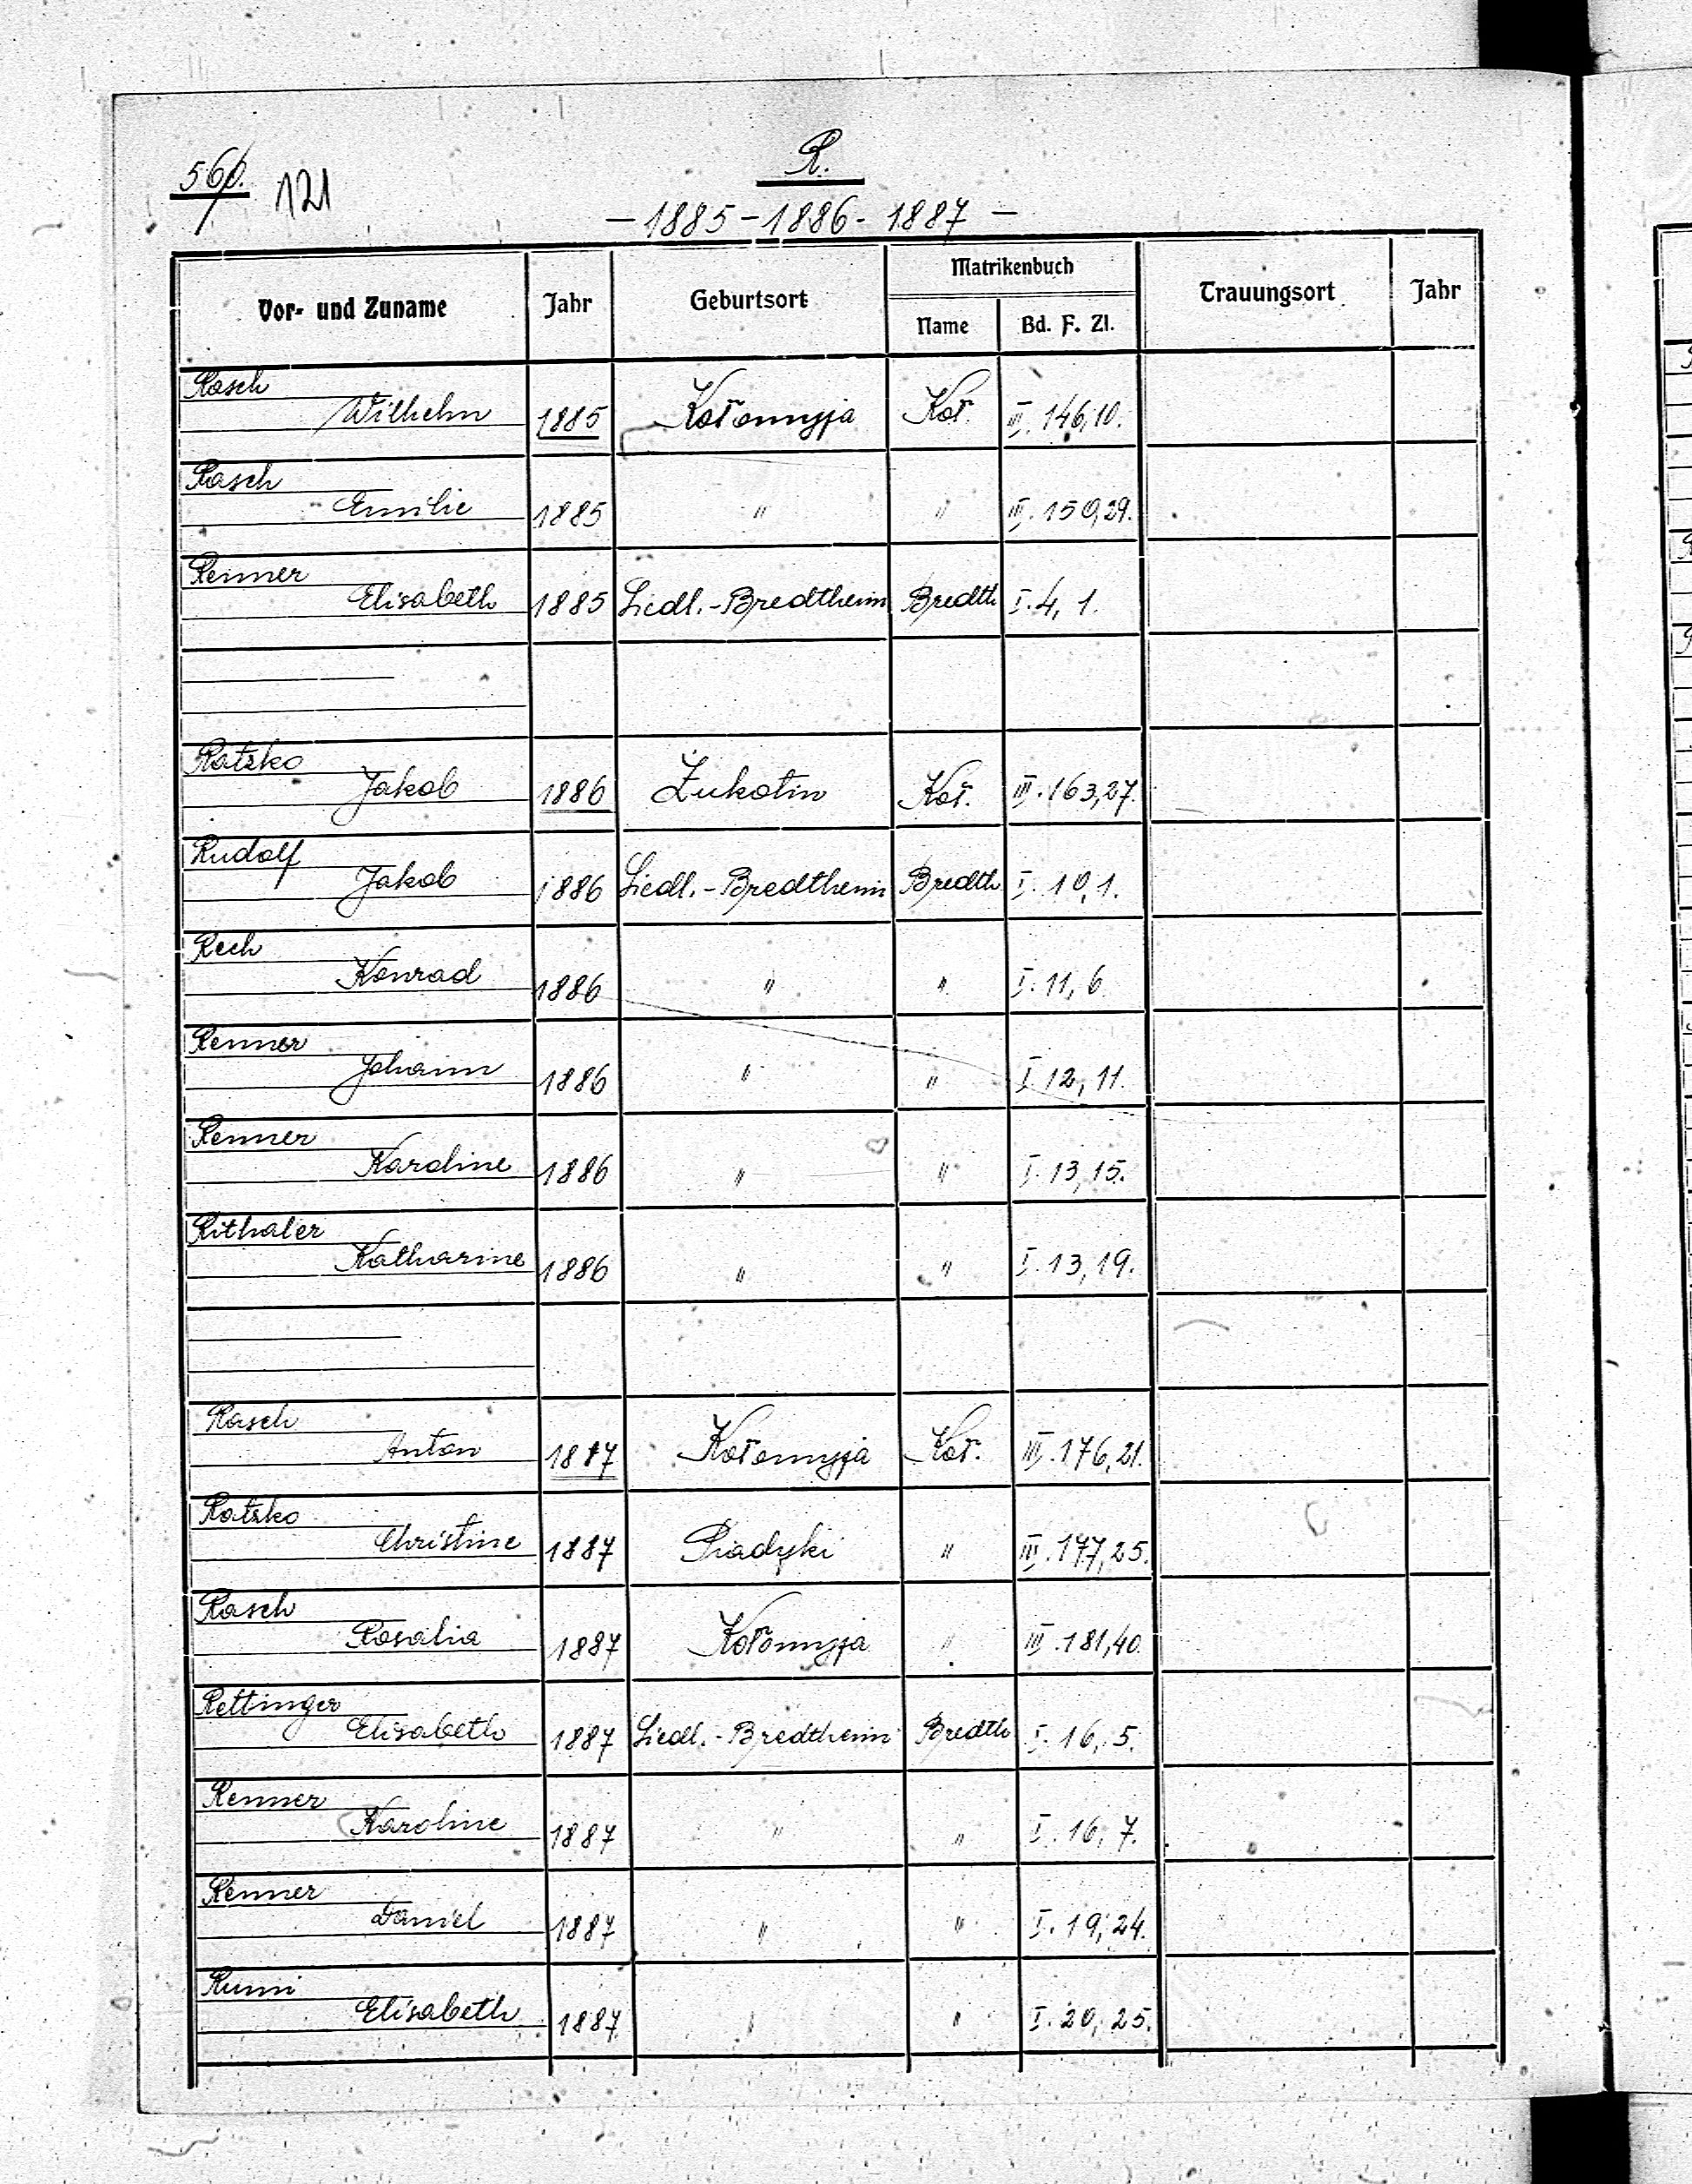 R.
560. 121
— 1885 - 1886 - 1887 —
Vor- und Zuname Jahr Geburtsort Matrikenbuch Trauungsort Jahr
Name Bd. F. Zl.
Rasch
Wilhelm 1885 Kołomyja Koł. III. 146,10.
Rasch
Emilie 1885 " " III. 150,29.
Renner
Elisabeth 1885 Siedl.-Bredtheim Bredth I. 4, 1.
Ratzko
Jakob 1886 Żukotin Koł. III. 163,27.
Rudolf
Jakob 1886 Siedl.-Bredtheim Bredth I. 10,1.
Rech
Konrad 1886 " " I. 11, 6.
Renner
Johann 1886 " " I. 12, 11.
Renner
Karoline 1886 " " I. 13, 15.
Rithaler
Katharine 1886 " " I. 13, 19.
Rasch
Anton 1887 Kołomyja Koł. III. 176,21.
Ratzko
Christine 1887 Piadyki " III. 177,25.
Rasch
Rosalia 1887 Kołomyja " III. 181,40.
Rettinger
Elisabeth 1887 Siedl.-Bredtheim Bredth I. 16, 5.
Renner
Karoline 1887 " " I. 16, 7.
Renner
Daniel 1887 " " I. 19, 24.
Rumi
Elisabeth 1887 " " I. 20, 25.